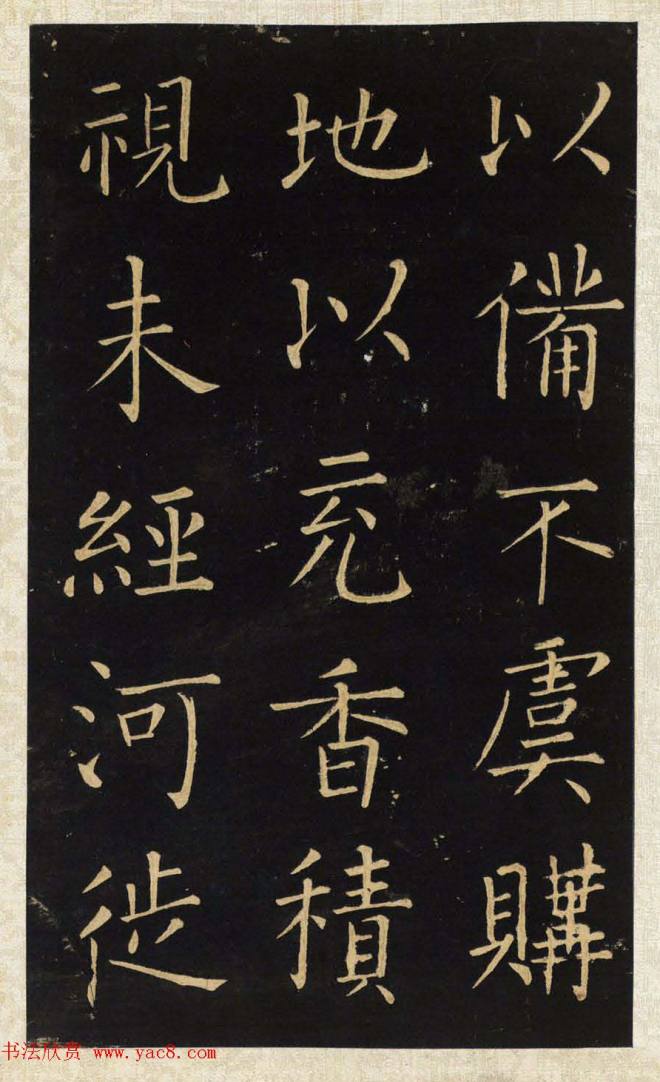 以備不虞購
地以充香積
視未經河徙
书法欣赏 www.yac8.com